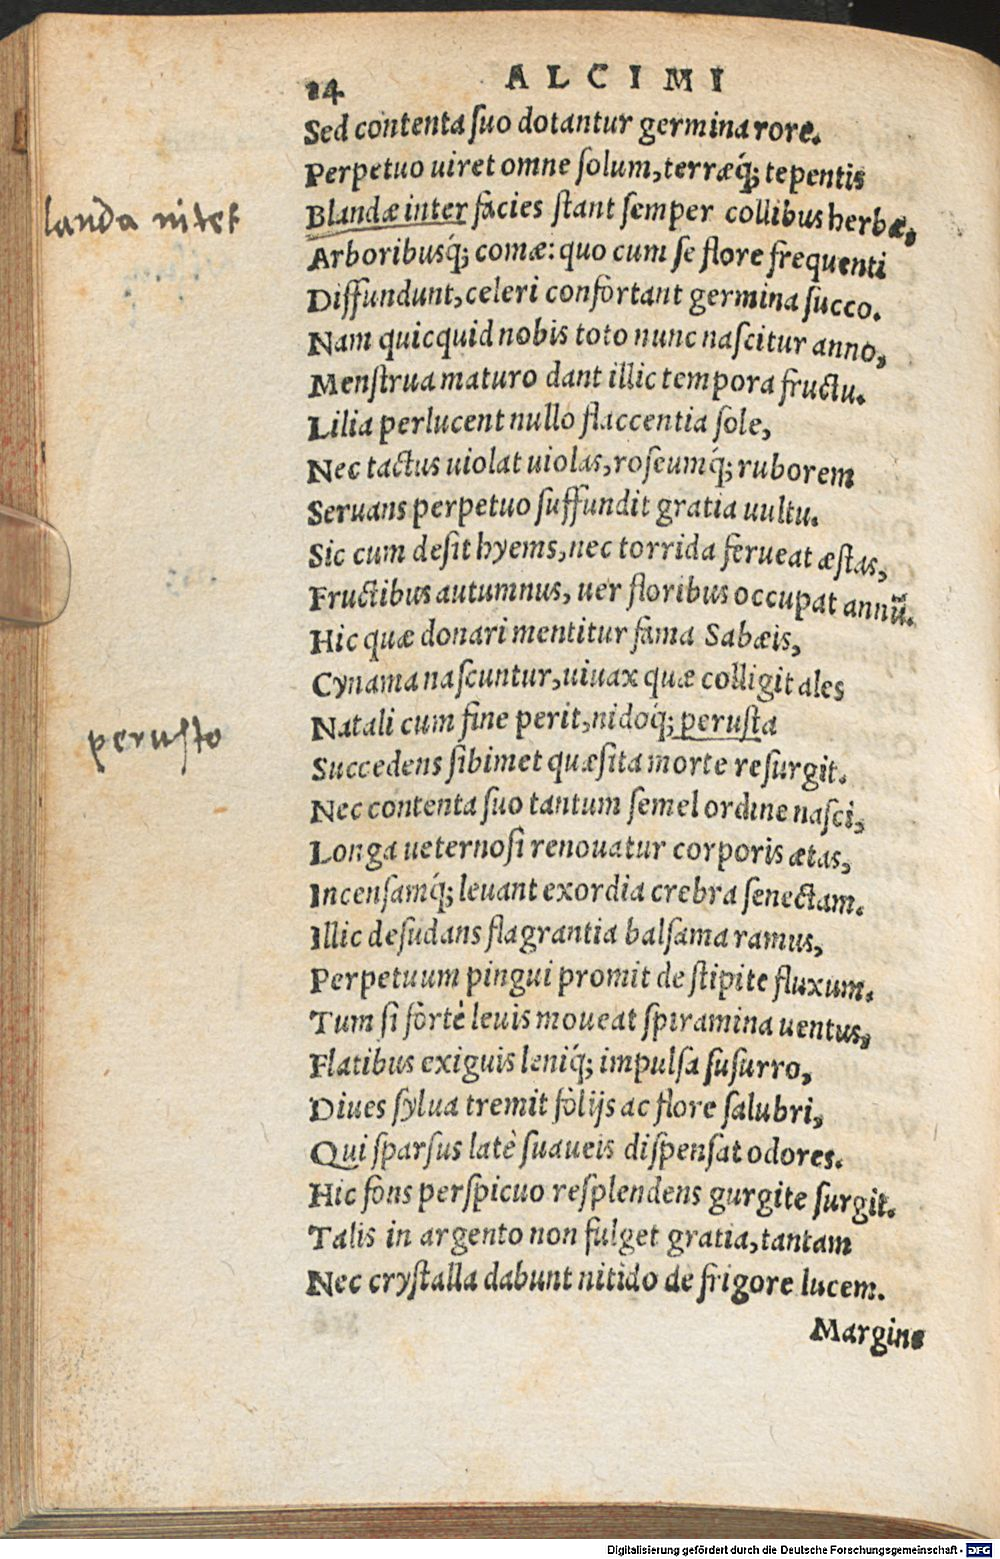 14 ALCIMI
Sed contenta suo dotantur germina rore.
Perpetuo uiret omne solum, terræq́; tepentis
landa nitet
Blandæ inter facies stant semper collibus herbæ,
Arboribusq́; comæ: quo cum se flore frequenti
Diffundunt, celeri confortant germina succo.
Nam quicquid nobis toto nunc nascitur anno,
Menstrua maturo dant illic tempora fructu.
Lilia perlucent nullo flaccentia sole,
Nec tactus uiolat uiolas, roseumq́; ruborem
Seruans perpetuo suffundit gratia uultu.
Sic cum desit hyems, nec torrida ferueat æstas,
Fructibus autumnus, uer floribus occupat annū.
Hic quæ donari mentitur fama Sabæis,
Cynama nascuntur, uiuax quæ colligit ales
perusto
Natali cum fine perit, nidoq́; perusta
Succedens sibimet quæsita morte resurgit.
Nec contenta suo tantum semel ordine nasci,
Longa ueternosi renouatur corporis ætas,
Incensamq́; leuant exordia crebra senectam.
Illic desudans flagrantia balsama ramus,
Perpetuum pingui promit de stipite fluxum.
Tum si fortè leuis moueat spiramina uentus,
Flatibus exiguis leniq́; impulsa susurro,
Diues sylua tremit folijs ac flore salubri,
Qui sparsus latè suaueis dispensat odores.
Hic fons perspicuo resplendens gurgite surgit.
Talis in argento non fulget gratia, tantam
Nec crystalla dabunt nitido de frigore lucem.
Margine
Digitalisierung gefördert durch die Deutsche Forschungsgemeinschaft - DFG